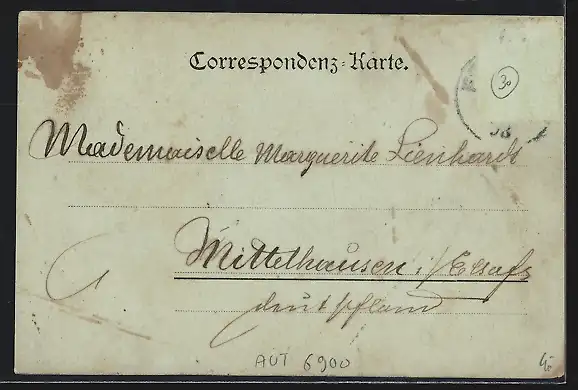 Correspondenz-Karte.
30
98
Mademoiselle Marguerite Lienhardt
Mittelhausen i/Elsaß
deutschland
AUT 6900